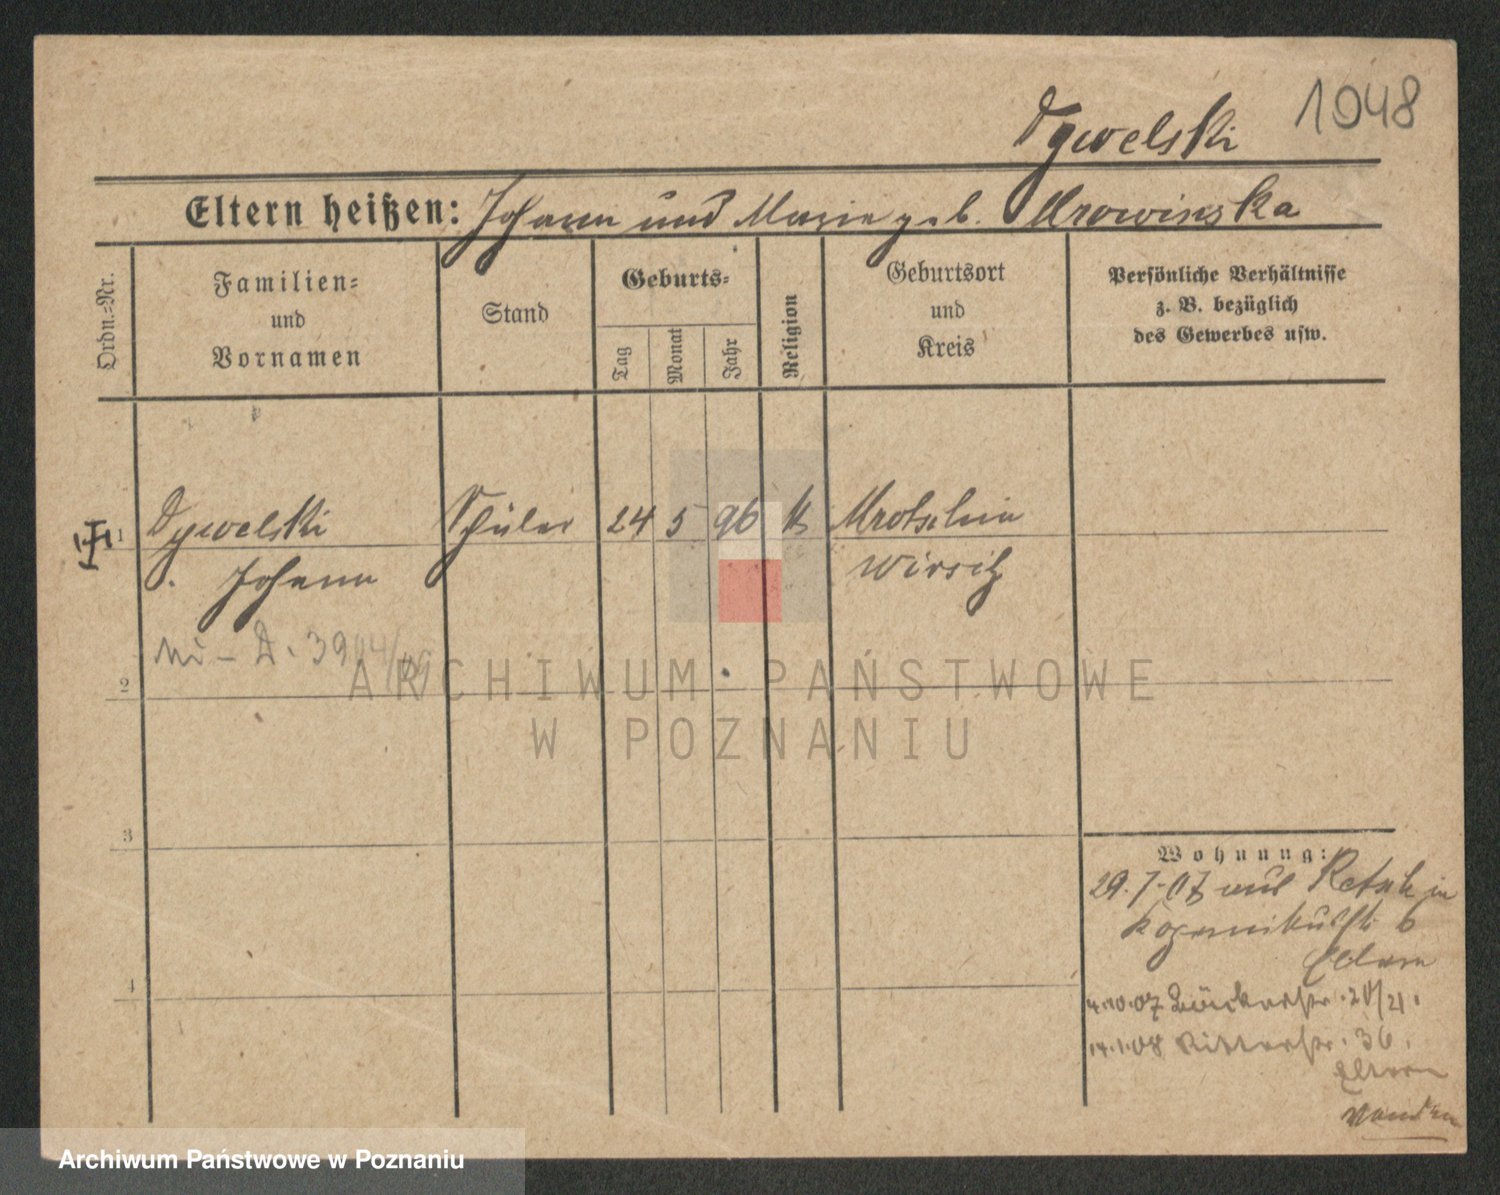 1948
Dywelski
Eltern heißen: Johann und Marie geb. Mrowinska
Ordn.=Nr.
Familien=
und
Vornamen
Stand
Geburts=
Tag
Monat
Jahr
Religion
Geburtsort
und
Kreis
Persönliche Verhältnisse
z. B. bezüglich
des Gewerbes usw.
1
Dywelski Schüler 24 5 96 K Mrotschin
Johann Wirsitz
2
3
4
Wohnung:
29.7.07 aus Retsch in
6
Eltern
4.10.07 Bäckerstr. 20/21.
14.1.08 Ritterstr. 36.
Eltern
wenden
ARCHIWUM PAŃSTWOWE
W POZNANIU
Archiwum Państwowe w Poznaniu